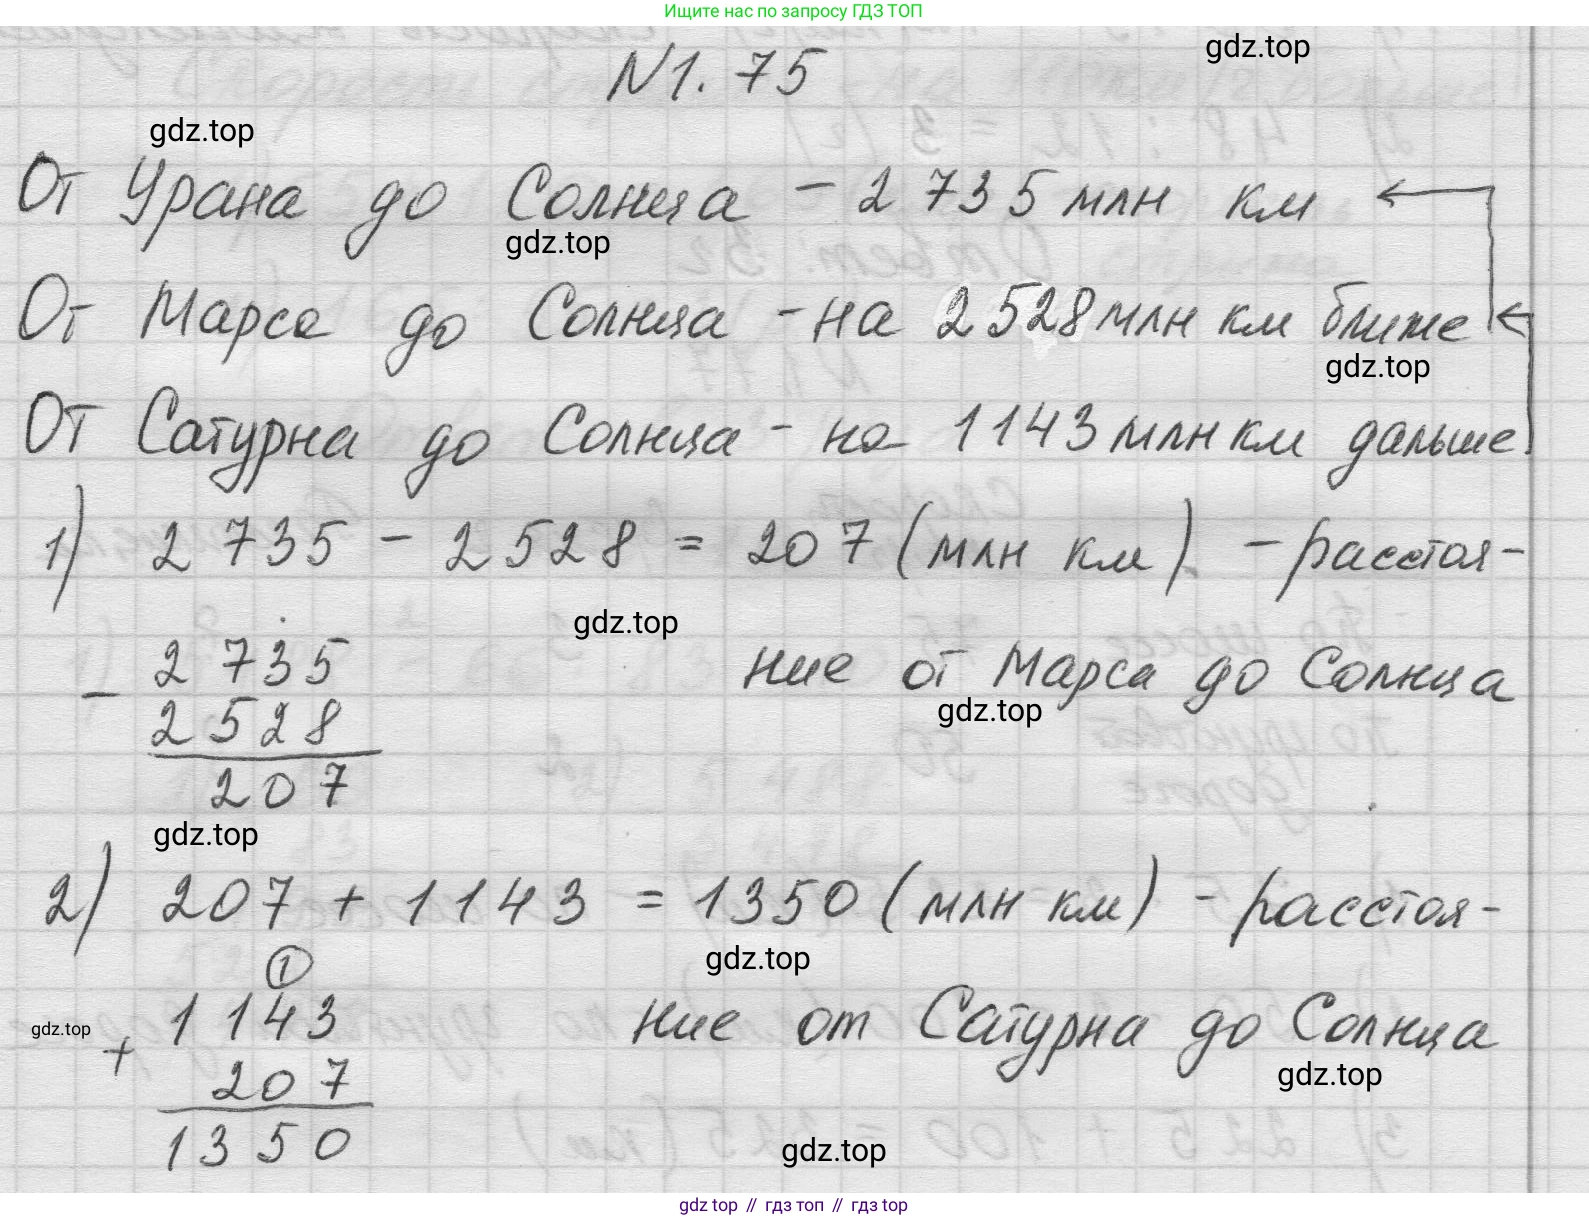 Ищите нас по запросу ГДЗ ТОП
gdz.top
N1.75
gdz.top
От Урана до Солнца - 2 735 млн км
gdz.top
От Марса до Солнца - на 2528 млн км ближе
gdz.top
От Сатурна до Солнца - на 1143 млн км дальше
1) 2 735 - 2 528 = 207 (млн км) - расстоя-
gdz.top
2 735
ние от Марса до Солнца
-
gdz.top
2 528
207
gdz.top
2) 207 + 1143 = 1350 (млн км) - расстоя-
gdz.top
1
1143
ние от Сатурна до Солнца
gdz.top
+
207
gdz.top
1350
gdz.top
gdz top // гдз топ // гдз top